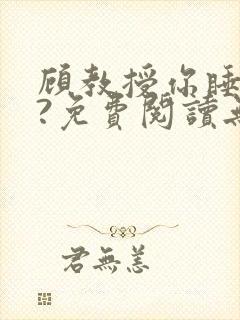 顾教授你睡
?免費閱讀
君無恙